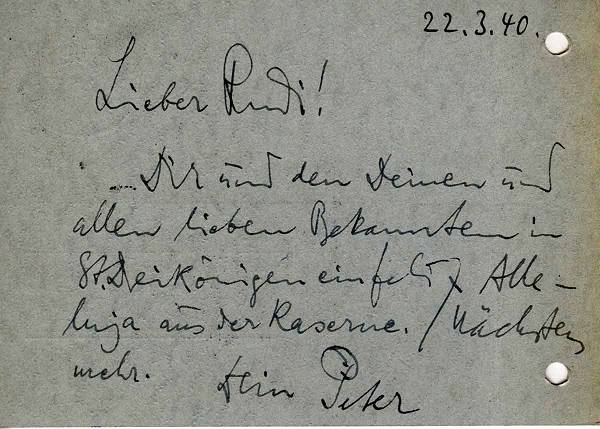 22.3.40.
Lieber Rudi!
... Dir und den Deinen und
allen lieben Bekannten in
St. Dreikönigen ein frohes Alle-
luja aus der Kaserne. / Nächstens
mehr. Dein Peter